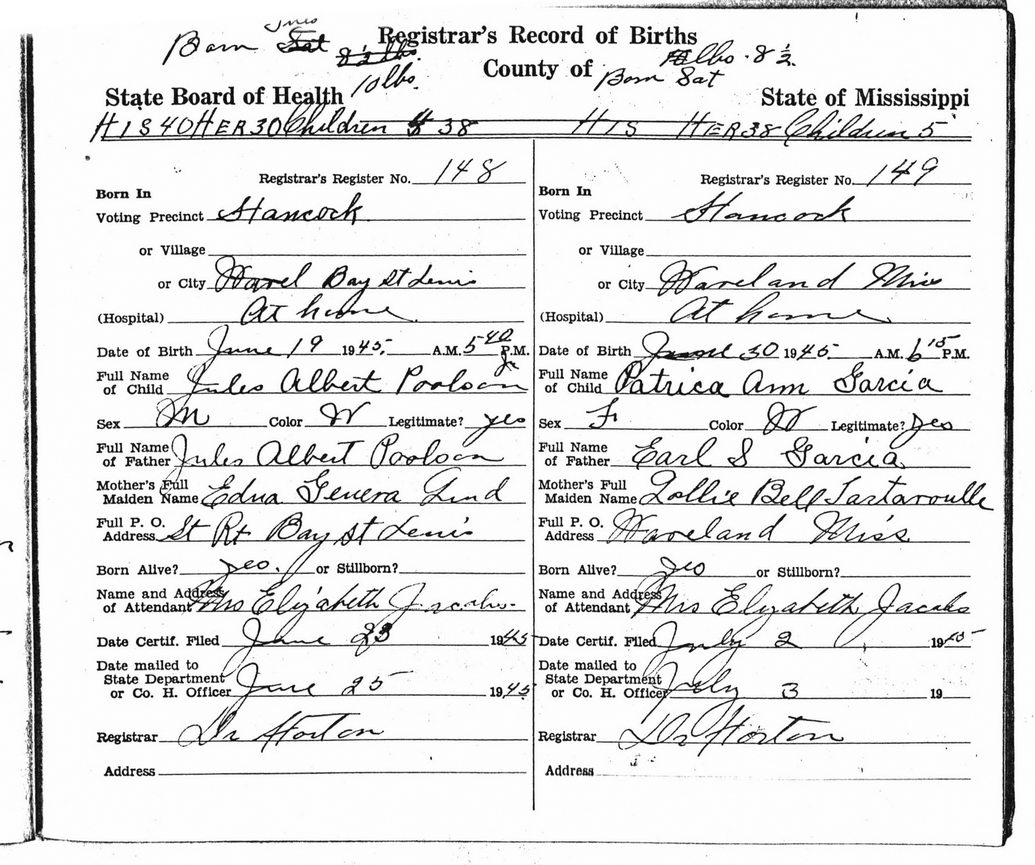 Registrar's Record of Births
Born Tues
10 lbs.
County of
lbs. 8 ½
Born Sat
State Board of Health
State of Mississippi
HIS 40 HER 30 Children 38
HIS HER 38 Children 5
Registrar's Register No. 148
Born In
Voting Precinct Hancock
or Village
or City Bay St Louis
(Hospital) At home
Date of Birth June 19 1945. A.M. 5 40 P.M.
Full Name of Child Jules Albert Poolson Jr
Sex M Color W Legitimate? yes
Full Name of Father Jules Albert Poolson
Mother's Full Maiden Name Edna Genera Lind
Full P. O. Address St Rt Bay St Louis
Born Alive? yes. or Stillborn?
Name and Address of Attendant Mrs Elizabeth Jacobs.
Date Certif. Filed June 23 1945
Date mailed to State Department or Co. H. Officer June 25 1945
Registrar Dr Horton
Address
Registrar's Register No. 149
Born In
Voting Precinct Hancock
or Village
or City Waveland Miss
(Hospital) At home
Date of Birth June 30 1945 A.M. 6 15 P.M.
Full Name of Child Patrica Ann Garcia
Sex F Color W Legitimate? yes
Full Name of Father Earl S Garcia
Mother's Full Maiden Name Lollie Bell Tartavoulle
Full P. O. Address Waveland Miss.
Born Alive? yes or Stillborn?
Name and Address of Attendant Mrs Elizabeth Jacobs
Date Certif. Filed July 2 1945
Date mailed to State Department or Co. H. Officer July 3 19
Registrar Dr Horton
Address